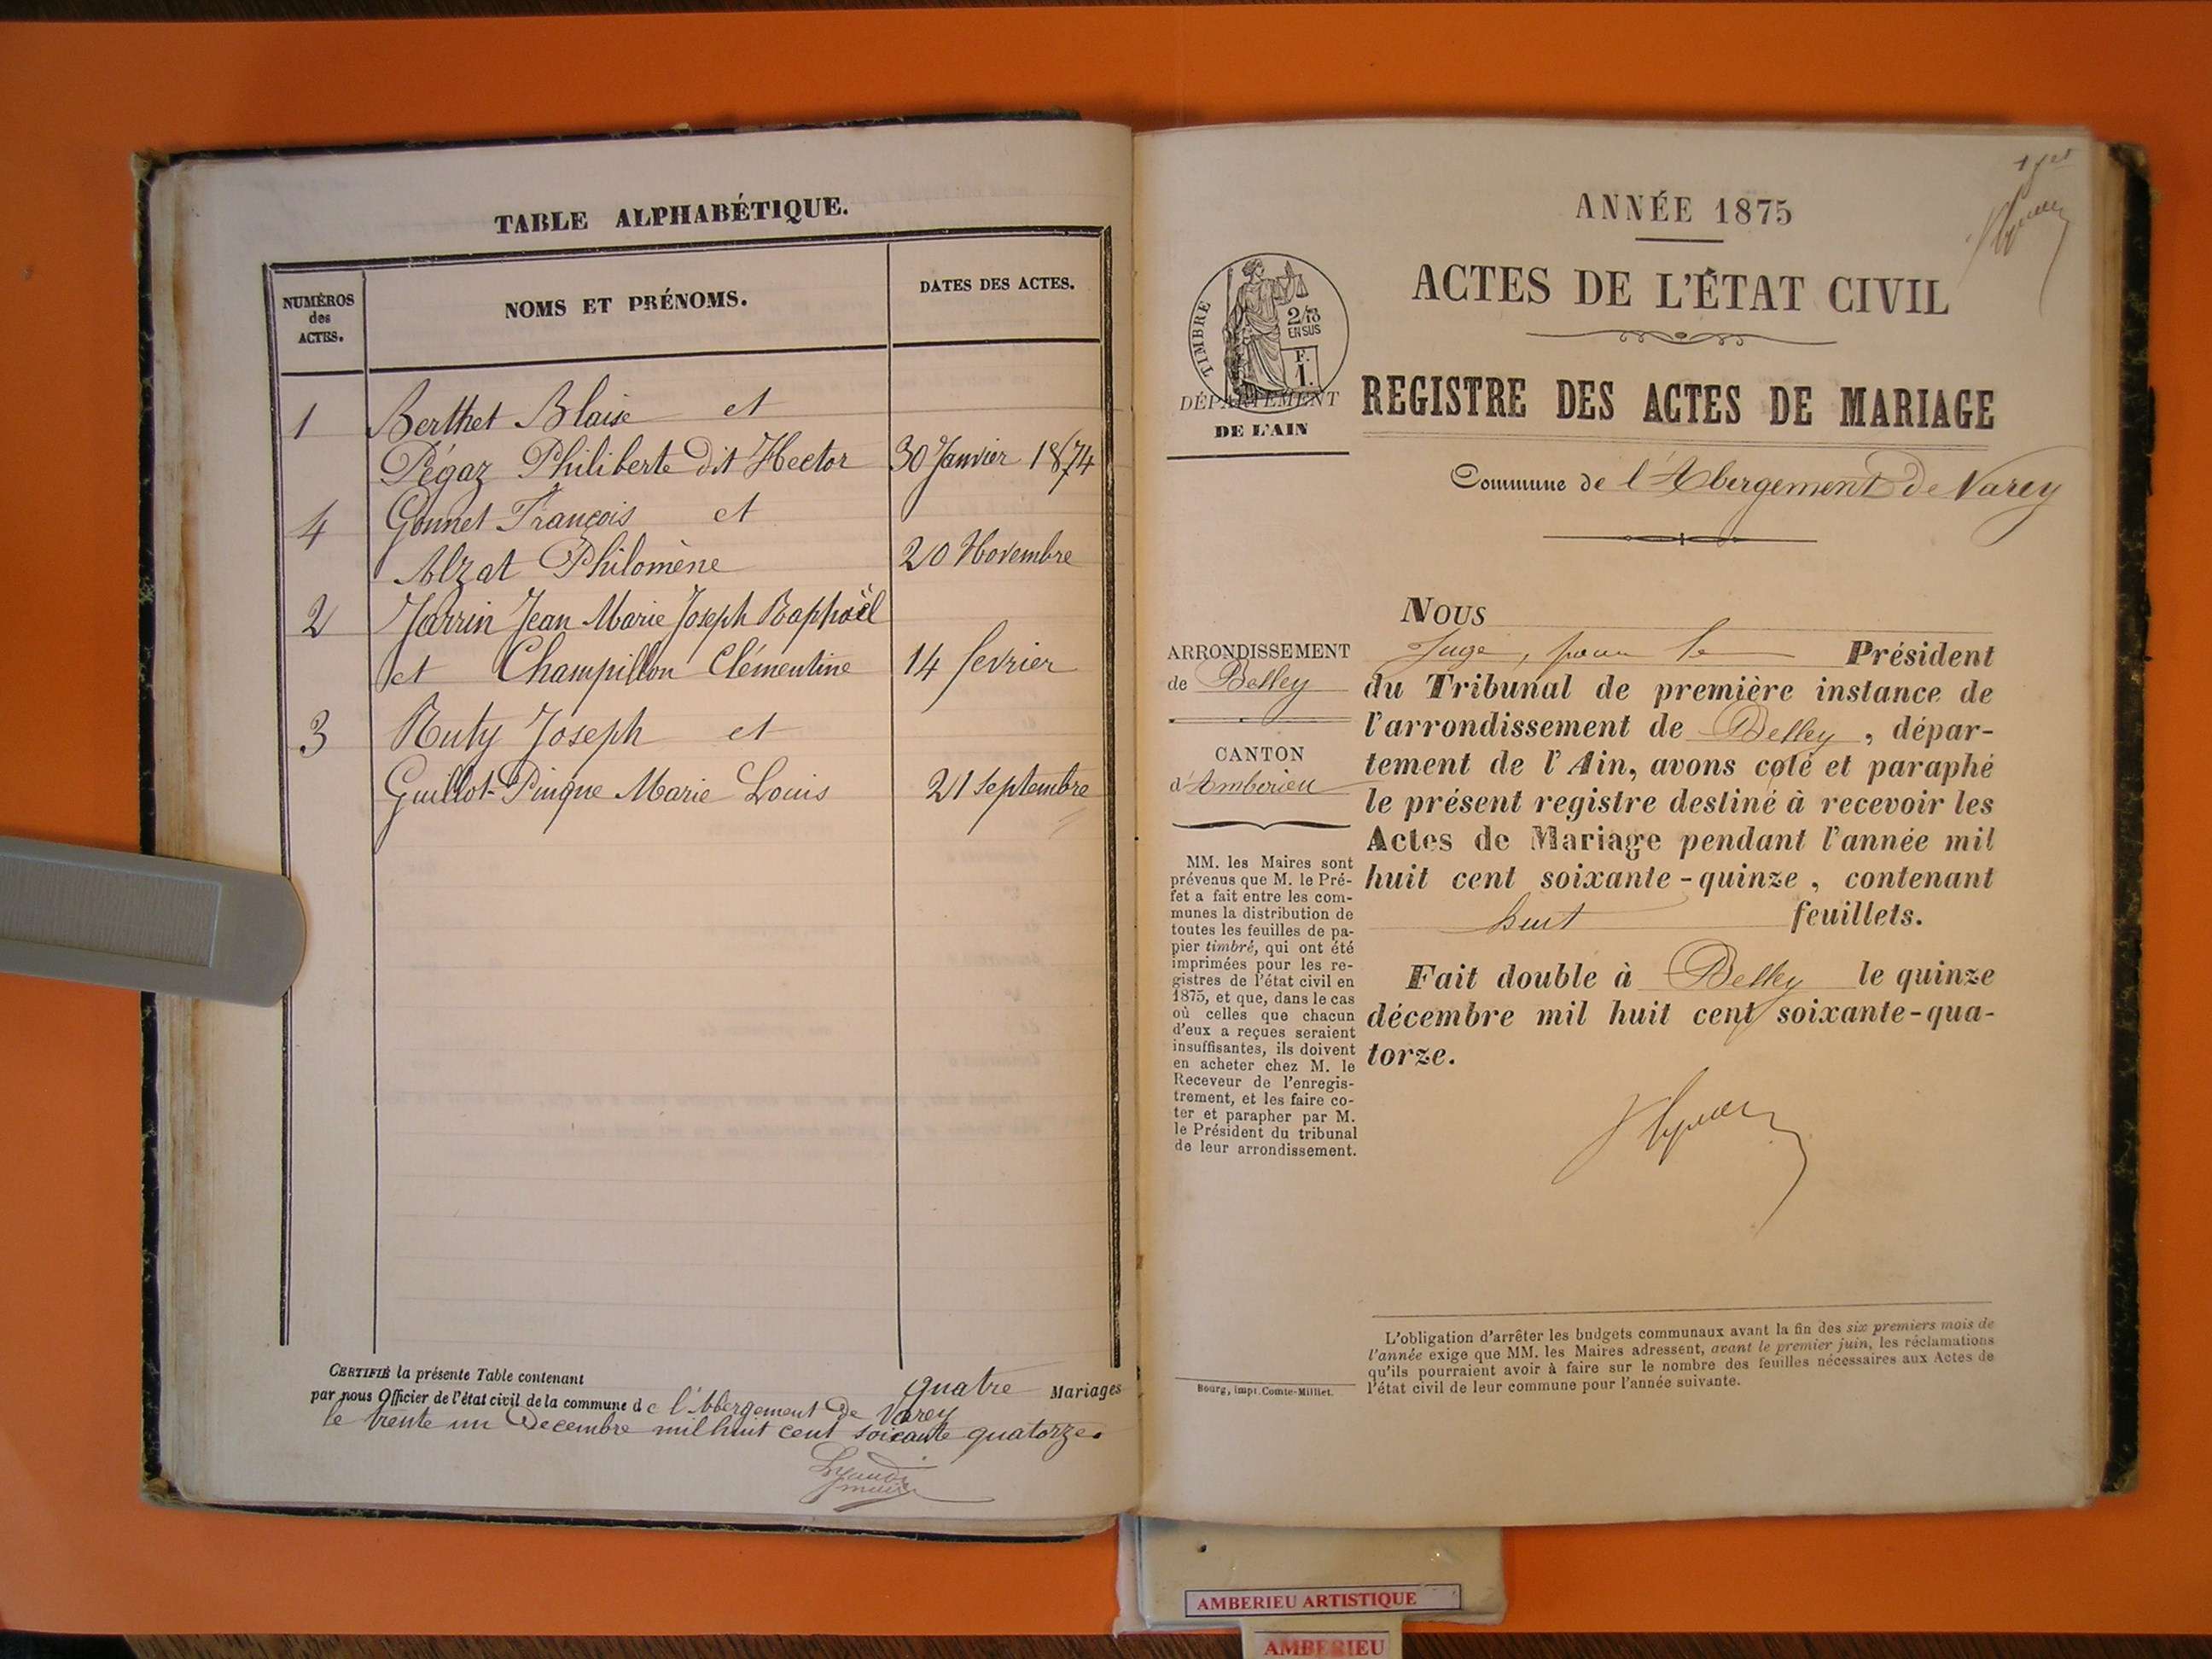 TABLE ALPHABÉTIQUE.
NUMÉROS
des
ACTES.
NOMS ET PRÉNOMS.
DATES DES ACTES.
1 Berthet Blaise et
Pégaz Philiberte dit Hector 30 Janvier 1874
4 Gonnet François et
Alzat Philomène 20 Novembre
2 Jarrin Jean Marie Joseph Raphaël
et Champillon Clémentine 14 fevrier
3 Ruty Joseph et
Guillot-Pingue Marie Louis 21 Septembre
CERTIFIÉ la présente Table contenant quatre Mariages
par nous Officier de l'état civil de la commune de l'Abergement de Varey
le trente un Decembre mil huit cent soixante quatorze.
maire
1er
ANNÉE 1875
ACTES DE L'ÉTAT CIVIL
TIMBRE
2/10
EN SUS
F.
1.
DÉPARTEMENT
DE L'AIN
REGISTRE DES ACTES DE MARIAGE
Commune de l'Abergement de Varey
ARRONDISSEMENT
de Belley
CANTON
d'Amberieu
MM. les Maires sont
prévenus que M. le Pré-
fet a fait entre les com-
munes la distribution de
toutes les feuilles de pa-
pier timbré, qui ont été
imprimées pour les re-
gistres de l'état civil en
1875, et que, dans le cas
où celles que chacun
d'eux a reçues seraient
insuffisantes, ils doivent
en acheter chez M. le
Receveur de l'enregis-
trement, et les faire co-
ter et parapher par M.
le Président du tribunal
de leur arrondissement.
Bourg, impr. Comte-Milliet.
NOUS
Juge, pour le Président
du Tribunal de première instance de
l'arrondissement de Belley, dépar-
tement de l'Ain, avons coté et paraphé
le présent registre destiné à recevoir les
Actes de Mariage pendant l'année mil
huit cent soixante-quinze, contenant
huit feuillets.
Fait double à Belley le quinze
décembre mil huit cent soixante-qua-
torze.
L'obligation d'arrêter les budgets communaux avant la fin des six premiers mois de
l'année exige que MM. les Maires adressent, avant le premier juin, les réclamations
qu'ils pourraient avoir à faire sur le nombre des feuilles nécessaires aux Actes de
l'état civil de leur commune pour l'année suivante.
AMBERIEU ARTISTIQUE
AMBERIEU